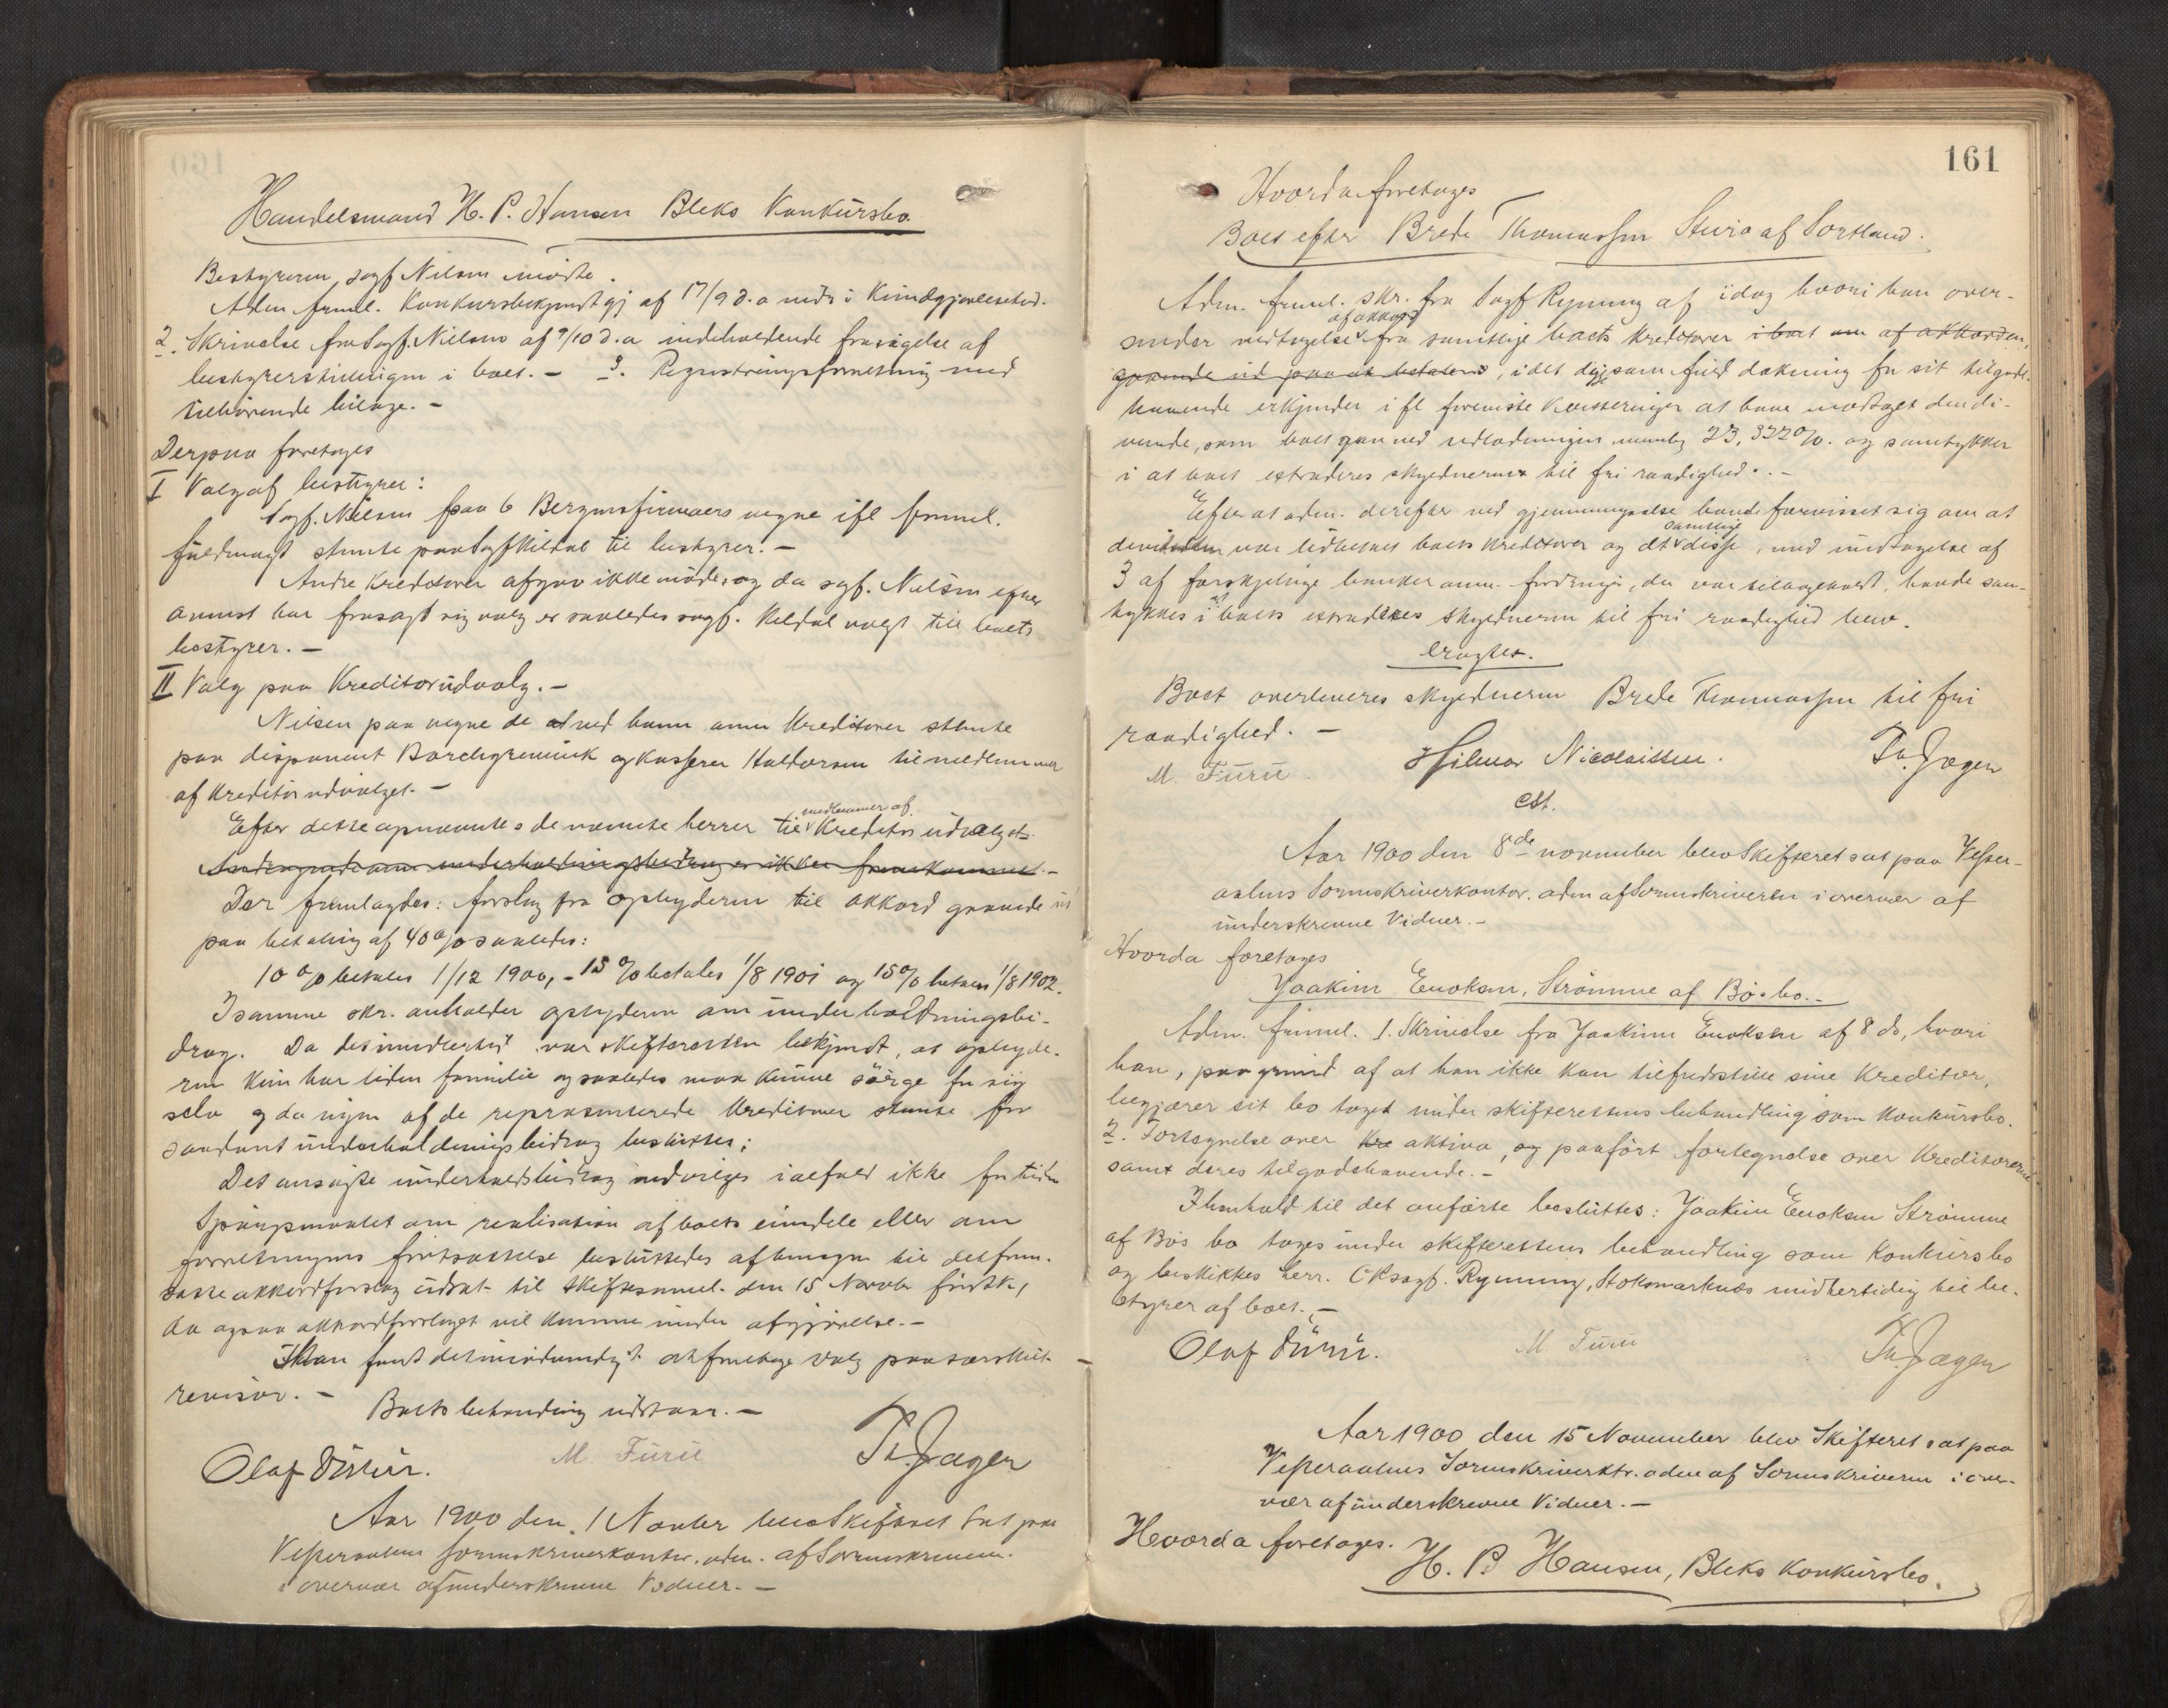 Handelsmand H. P. Hansen Bleks Konkursbo.
Bestyreren, sagf Nilsen mødte.
Adm freml. Konkursbekjendtgj af 17/9 d. a inds i Kundgjørelsestid.
2. Skrivelse fra Sagf. Nilsen af 9/10 d. a indeholdende frasigelse af
bestyrerstillingen i boet. - 3. Registreringsforretning med
tilhørende bilage. -
Derpaa foretages
I Valg af bestyrer:
Sagf. Nilsen paa 6 Bergensfirmaers vegne ifl freml.
fuldmagt stemte paa Sagf Kildal til bestyrer. -
Andre Kreditorer afgav ikke møde, og da sagf. Nilsen
har frasagt sig valg er saaledes sagf. Kildal valgt til boets
bestyrer. -
II Valg paa Kreditorudvalg. -
Nilsen paa vegne de ved ham anm Kreditorer stemte
paa disponent Borchgrevink og Kasserer Haldorsen til medlemmer
af Kreditorudvalget. -
Efter dette opnævntes de nævnte herrer til medlemmer af Kreditorudvalget.
underholdningsbidrag er ikke fremkommet. -
Der fremlagdes: forslag fra opbyderen til akkord gaaende ud
paa betaling af 40 % saaledes:
10 % betales 1/12 1900, - 15 % betales 1/8 1901 og 15 % betales 1/8 1902.
I samme skr. anholder opbyderen om underholdningsbi-
drag. Da det imidlertid var skifteretten bekjendt, at opbyde-
ren kun har liden familie og saaledes maa kunne sørge for sig
selv og da ingen af de repræsenterede Kreditorer stemte for
saadant underholdningsbidrag besluttes:
Det ansøgte underholdsbidrag indvilges ialfald ikke for tiden
Spørgsmaalet om realisation af boets eiendele eller om
forretningens fortsættelse besluttedes af hensyn til det frem-
satte akkordforslag udsat til skiftesaml. den 15 Novbr førstk.,
da ogsaa akkordforslaget vil komme under afgjørelse. -
Man fandt det unødvendigt at foretage valg paa særskilt
revisor. -
Boets behandling udstaar. -
Olaf M. Furu Th. Jager
Aar 1900 den 1 Novber blev Skifteret sat paa
Vesteraalens sorenskriverkontor, adm. af Sorenskriveren
i overvær af underskrevne Vidner. -
161
Hvorda foretages
Boet efter Brede Thomassen Steiro af Sortland.
Adm. freml. skr. fra Sagf Rynning af idag hvori han over-
sender vedtagelse af akkord fra samtlige boets kreditorer i boet om af akkorden,
gaaende ud paa at betales, idet disse som fuld dækning for sit tilgode-
havende erkjender ifl foreviste kvitteringer at have modtaget den di-
vidende, som boet gav ved udlodningen nemlig 23,332 %. og samtykker
i at boet extraderes skyldneren til fri raadighed. -
Efter at adm. derefter ved gjennemgaaelse havde forvisset sig om at
var tilstillet boets kreditorer og at samtlige disse, med undtagelse af
3 af forskjellige banker anm. fordringer, der var tilbagekaldt, havde sam-
tykket i at boets extraderes skyldneren til fri raadighed blev.
eragtet.
Boet overleveres skyldneren Brede Thomassen til fri
raadighed. -
M. Furu. Hilmar Nicolaissen. Th. Jager
cst.
Aar 1900 den 8de november blev Skifteret sat paa Vester-
aalens Sorenskriverkontor, adm af Sorenskriveren i overvær af
underskrevne Vidner. -
Hvorda foretages
Joakim Enoksen, Strømme af Bø's bo. -
Adm. freml. 1. Skrivelse fra Joakim Enoksen af 8 ds, hvori
han, paa grund af at han ikke kan tilfredsstille sine Kreditor,
begjærer sit bo taget under skifterettens behandling som Konkursbo.
2. Fortegnelse over Kre aktiva, og paaført fortegnelse over Kreditorerne
samt deres tilgodehavende. -
I henhold til det anførte besluttes: Joakim Enoksen Strømme
af Bø's bo tages under skifterettens behandling som Konkursbo
og beskikkes herr. O R sagf. Rynning, Stokmarknæs midlertidig til be-
styrer af boet. -
Olaf M Furu Th. Jager
Aar 1900 den 15 November blev Skifteret sat paa
Vesteraalens Sorenskriverktr. adm af Sorenskriveren i over-
vær af underskrevne Vidner. -
Hvorda foretages.
H. P Hansen, Bleks Konkursbo.